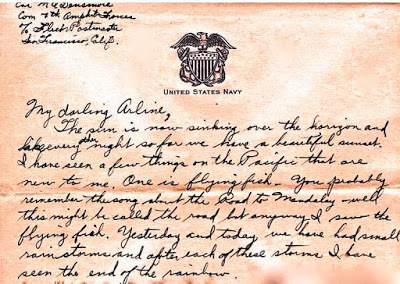 Car McDensmore
Com 7th Amphib Forces
℅ Fleet Postmaster
San Francisco, Calif.
UNITED STATES NAVY
My darling Arline,
The sun is now sinking over the horizon and
like every other night so far we have a beautiful sunset.
I have seen a few things on the Pacific that are
new to me. One is flying fish - You probably
remember the song about the Road to Mandalay - well
this might be called the road but anyway I saw the
flying fish. Yesterday and today we have had small
rain storms and after each of these storms I have
seen the end of the rainbow.